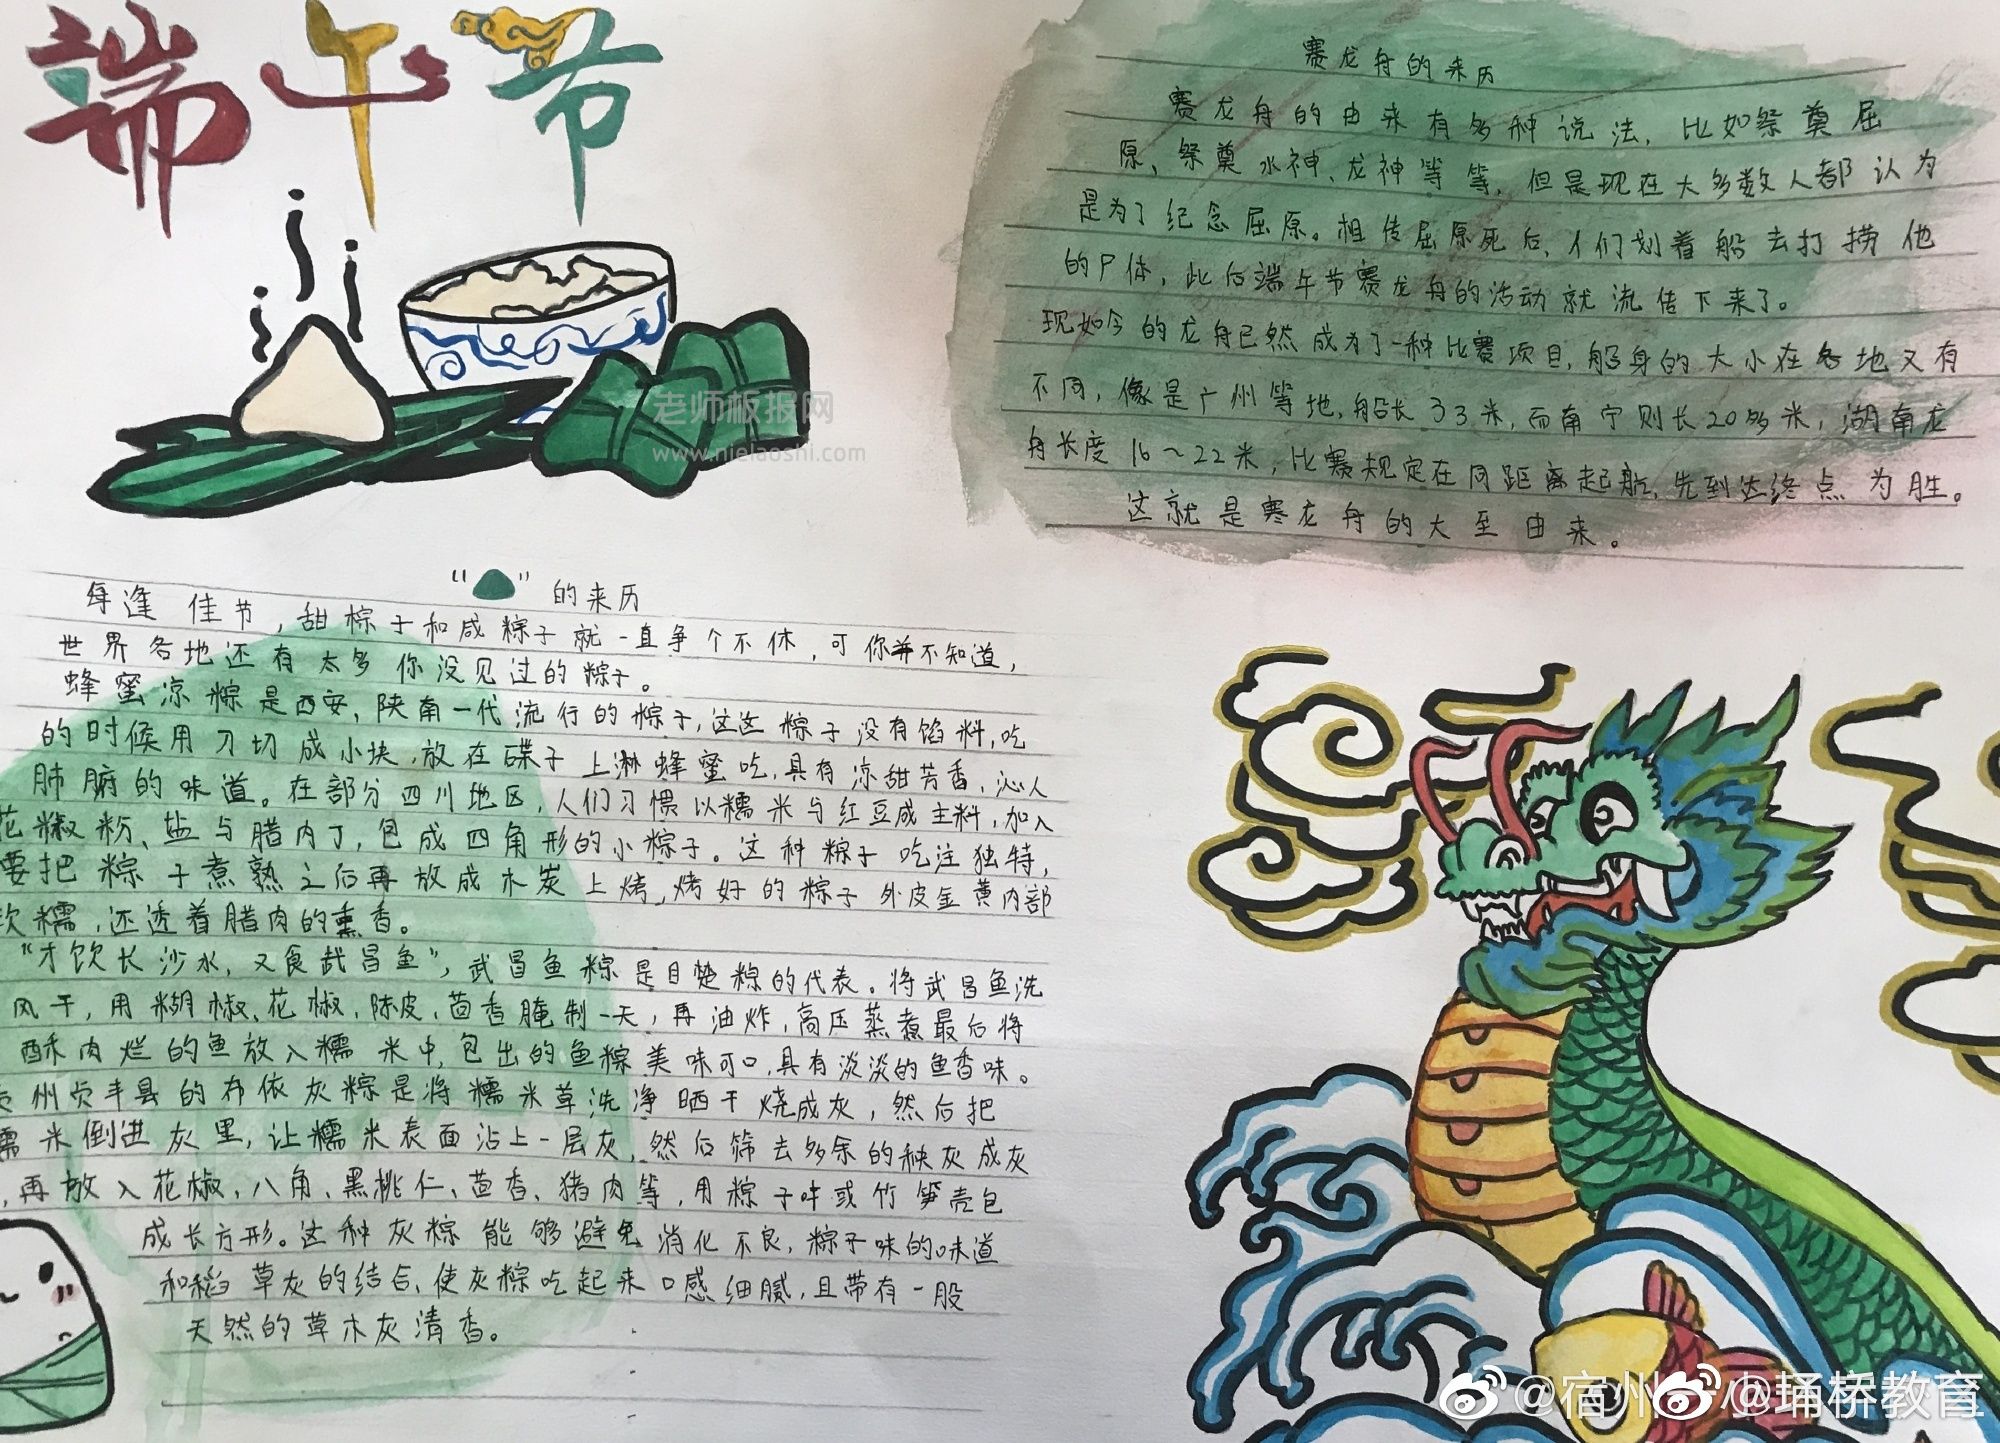 端午节
赛龙舟的来历
赛龙舟的由来有多种说法,比如祭奠屈
原、祭奠水神、龙神等等,但是现在大多数人都认为
是为了纪念屈原。相传屈原死后,人们划着船去打捞他
的尸体,此后端午节赛龙舟的活动就流传下来了。
现如今的龙舟已然成为了一种比赛项目,船身的大小在各地又有
不同,像是广州等地,船长33米,而南宁则长20多米,湖南龙
舟长度16~22米,比赛规定在同距离起航,先到达终点为胜。
这就是赛龙舟的大至由来。
老师板报网
www.nielaoshi.com
“ ”的来历
每逢佳节,甜粽子和咸粽子就一直争个不休,可你并不知道,
世界各地还有太多你没见过的粽子。
蜂蜜凉粽是西安,陕南一代流行的粽子,这这粽子没有馅料,吃
的时候用刀切成小块,放在碟子上淋蜂蜜吃,具有凉甜芳香,沁人
肺腑的味道。在部分四川地区,人们习惯以糯米与红豆成主料,加入
花椒粉、盐与腊肉丁,包成四角形的小粽子。这种粽子吃法独特,
要把粽子煮熟之后再放成木炭上烤,烤好的粽子外皮金黄内部
软糯,还透着腊肉的熏香。
“才饮长沙水,又食武昌鱼”,武昌鱼粽是目楚粽的代表。将武昌鱼洗
风干,用糊椒、花椒,陈皮,茴香腌制一天,再油炸,高压蒸煮最后将
酥肉烂的鱼放入糯米中,包出的鱼粽美味可口,具有淡淡的鱼香味。
州贞丰县的布依灰粽是将糯米草洗净晒干烧成灰,然后把
糯米倒进灰里,让糯米表面沾上一层灰,然后筛去多余的秧灰成灰
,再放入花椒、八角、黑桃仁、茴香、猪肉等,用粽子叶或竹笋壳包
成长方形。这种灰粽能够避免消化不良,粽子味的味道
和稻草灰的结合、使灰粽吃起来口感细腻,且带有一股
天然的草木灰清香。
@宿州
@埇桥教育